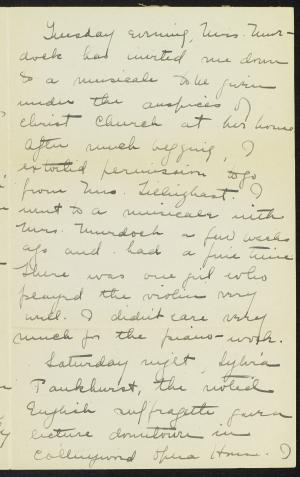 Tuesday evening, Mrs. Mur-
dock has invited me down
to a musicale to be given
under the auspices of
Christ Church at her home
After much begging, I
extorted permission to go
from Mrs. Tillinghast. I
went to a musicale with
Mrs. Murdock a few weeks
ago and had a fine time
There was one girl who
played the violin very
well. I didn't care very
much for the piano-work.
Saturday night, Sylvia
Pankhurst, the noted
English suffragette gave a
lecture downtown in
Collingwood Opera House. I